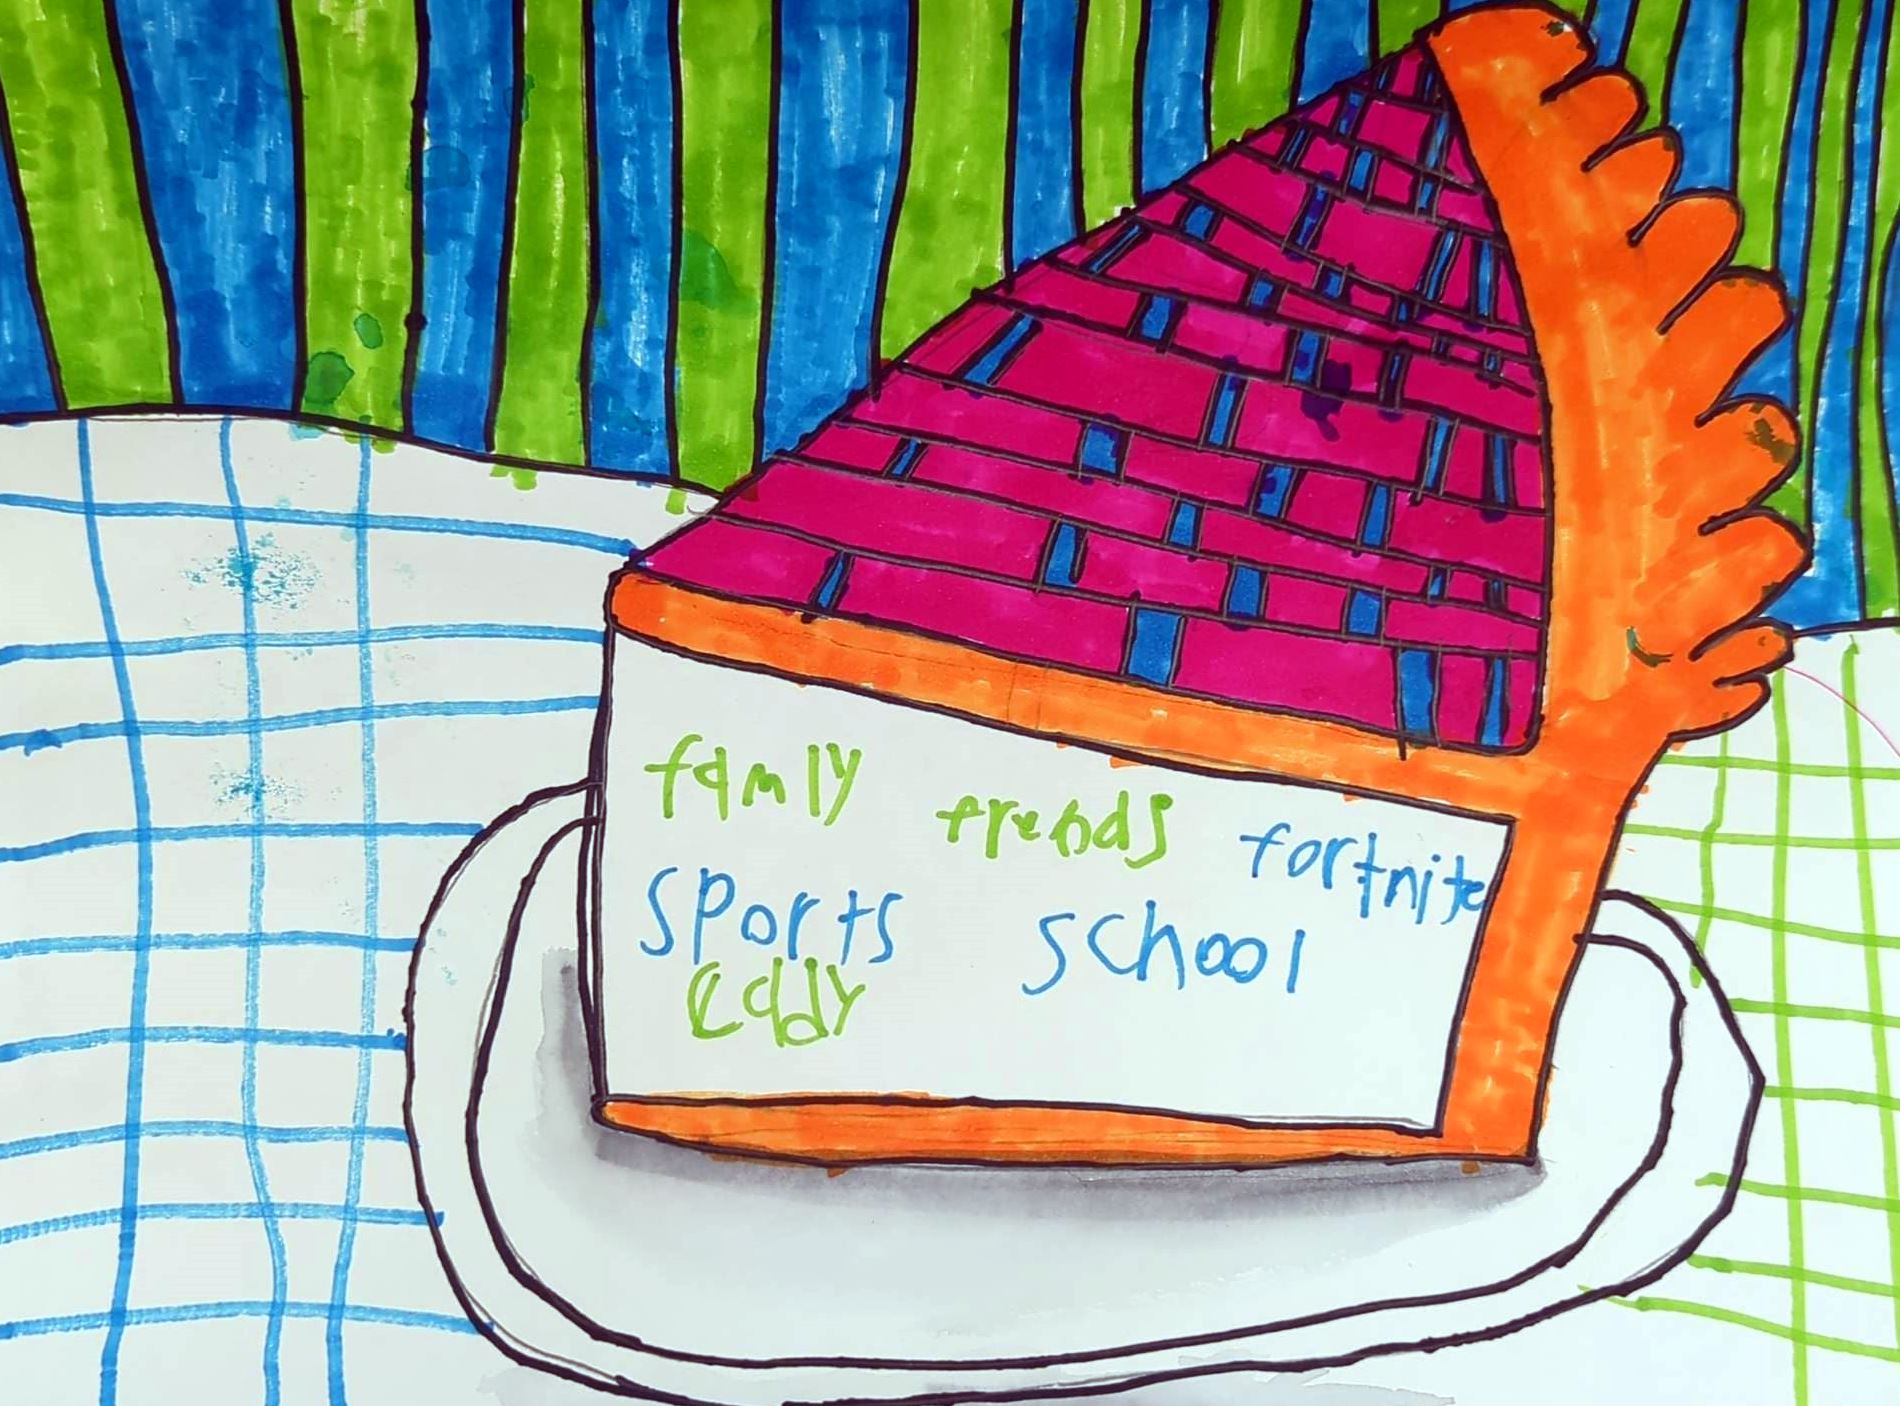 famly frends fortnite
sports school
eddy